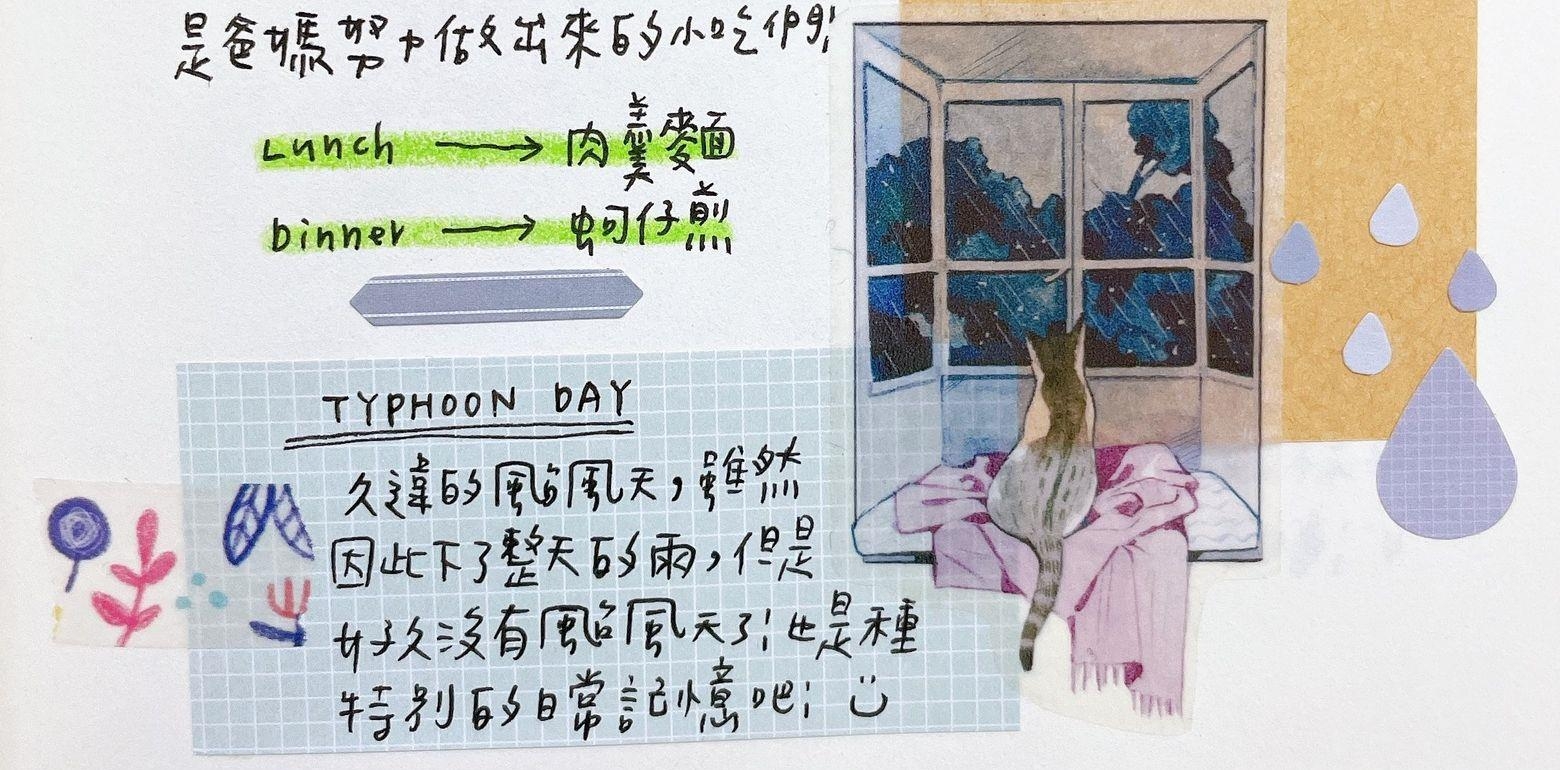 是爸媽努力做出來的小吃們!
Lunch → 肉羹麥面
Dinner → 蚵仔煎
TYPHOON DAY
久違的颱風天，雖然
因此下了整天的雨，但是
好久沒有颱風天了! 也是種
特別的日常記憶吧! :)